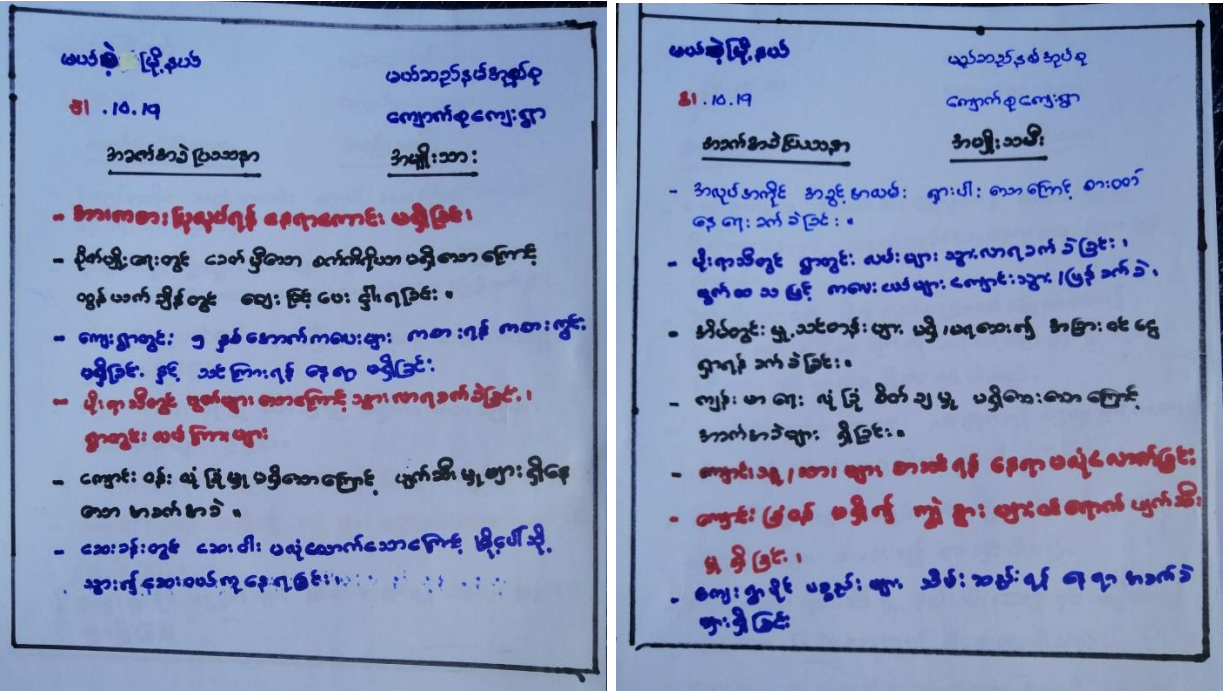 မယ်စဲ့မြို့နယ်
မယ်ဆည်နမ်အုပ်စု
31.10.19
ကျောက်စုကျေးရွာ
အခက်အခဲပြဿနာ
အမျိုးသား
- အားကစားပြုလုပ်ရန် နေရာကောင်း မရှိခြင်း၊
- စိုက်ပျိုးရေးတွင် ခေတ်မှီသော စက်ကိရိယာ မရှိသောကြောင့်
ထွန်ယက်ချိန်တွင် ဈေးမြင့်ပေးငှါးရခြင်း။
- ကျေးရွာတွင်း ၅ နှစ်အောက်ကလေးများ ကစားရန် ကစားကွင်း
မရှိခြင်း နှင့် သင်ကြားရန် နေရာ မရှိခြင်း
- မိုးရာသီတွင် ဗွက်များသောကြောင့် သွားလာရခက်ခဲခြင်း၊
ရွာတွင်း လမ်းကြားများ
- ကျောင်းဝန်း လုံခြုံမှုမရှိသောကြောင့် ပျက်ဆီးမှုများရှိနေ
သော အခက်အခဲ။
- ဆေးခန်းတွင် ဆေးဝါး မလုံလောက်သောကြောင့် မြို့ပေါ်သို့
သွား၍ဆေးဝယ်ကုနေရခြင်း၊
မယ်စဲ့မြို့နယ်
မယ်ဆည်နမ်အုပ်စု
31.10.19
ကျောက်စုကျေးရွာ
အခက်အခဲပြဿနာ
အမျိုးသမီး
- အလုပ်အကိုင် အခွင့်အလမ်း ရှားပါးသောကြောင့် စားဝတ်
နေရေးခက်ခဲခြင်း။
- မိုးရာသီတွင် ရွာတွင်းလမ်းများ သွားလာရခက်ခဲခြင်း၊
ဗွက်ထသဖြင့် ကလေးငယ်များ ကျောင်းသွား/ပြန်ခက်ခဲ၊
- အိမ်တွင်းမှု သင်တန်းများ မရှိ/မရသေး၍ အခြားဝင်ငွေ
ရှာရန် ခက်ခဲခြင်း။
- ကျန်းမာရေး လုံခြုံစိတ်ချမှု မရှိသေးသောကြောင့်
အခက်အခဲများ ရှိခြင်း။
- ကျောင်းသူ/သားများ စာသင်ရန် နေရာမလုံလောက်ခြင်း
- ကျောင်းခြံဝန် မရှိ၍ ကျွဲနွားများဝင်ရောက်ပျက်ဆီး
မှုရှိခြင်း၊
- ကျေးရွာပိုင် ပစ္စည်းများ သိမ်းဆည်းရန် နေရာအခက်ခဲ
များရှိခြင်း